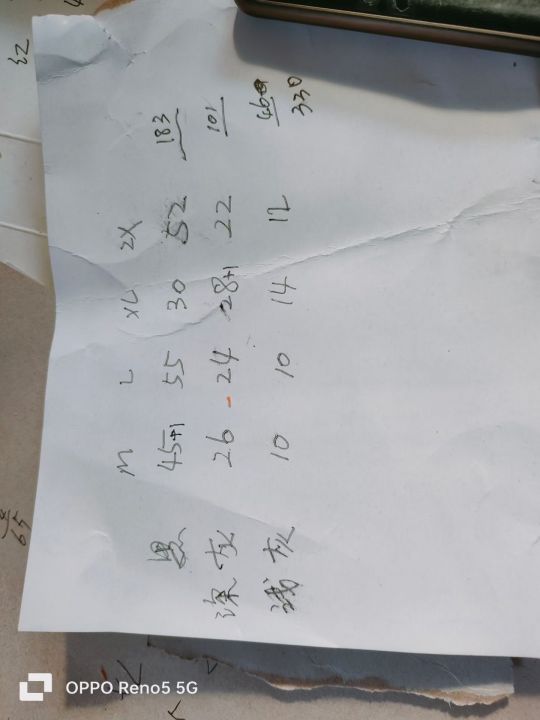 M L XL 2X
黑 45+1 55 30 52 183
深灰 26 - 24 28+1 22 101
浅灰 10 10 14 12 46
330
红
65
OPPO Reno5 5G